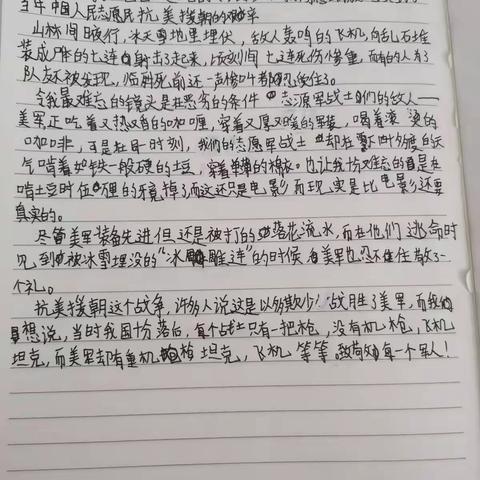 当年中国人民志愿民抗美援朝的艰辛
山林间日夜行,冰天雪地里埋伏,敌人轰鸣的飞机,向乱石堆
装成尸体的七连自射击了起来,顷刻间七连死伤惨重,而有的人为了
队友不被发现,临死前连一声惨叫都忍住了。
令我最难忘的镜头是在恶劣的条件 志源军战士们的敌人——
美军正吃着又热又香的咖喱,穿着又厚又暖的军装,喝着滚烫的
咖啡,可是在同一时刻,我们的志愿军战士却在零下四十多度的天
气啃着如铁一般硬的土豆,穿着单薄的棉衣。也让我十分难忘的是在
啃土豆时伍 里的牙掉了而这还只是电影而现实是比电影还要
真实的。
尽管美军装备先进但还是被打的落花流水,而在他们逃命时
见到被冰雪埋没的“冰雕连”的时候美军也忍不住敬了一
个礼。
抗美援朝这个战争,许多人说这是以多欺少!战胜了美军,而我
想说,当时我国十分落后,每个战士只有一把枪,没有机枪,飞机
坦克,而美军却有重机枪坦克,飞机等等。致荷每一个军人!